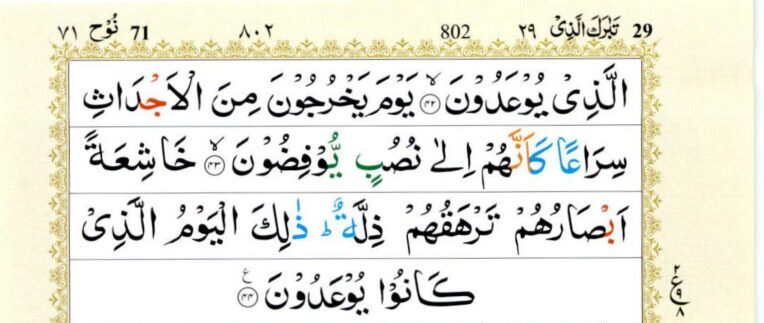 29 تَبٰرَكَ الَّذِیْ ٢٩ 802 ٨٠٢ 71 نُوْح ٧١
الَّذِیْ یُوْعَدُوْنَ ﴿٤٢﴾ۙ یَوْمَ یَخْرُجُوْنَ مِنَ الْاَجْدَاثِ
سِرَاعًا كَاَنَّهُمْ اِلٰی نُصُبٍ یُّوْفِضُوْنَ ﴿٤٣﴾ۙ خَاشِعَةً
اَبْصَارُهُمْ تَرْهَقُهُمْ ذِلَّةٌ ؕ ذٰلِكَ الْیَوْمُ الَّذِیْ
كَانُوْا یُوْعَدُوْنَ ﴿٤٤﴾ ع
٢
ع ٩
٨